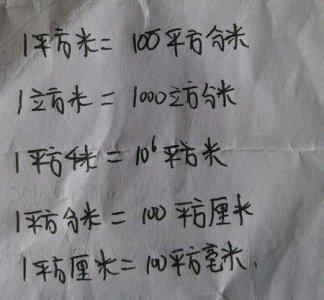 1平方米 = 100平方分米
1立方米 = 1000立方分米
1平方千米 = 10⁶平方米
1平方分米 = 100平方厘米
1平方厘米 = 100平方毫米.